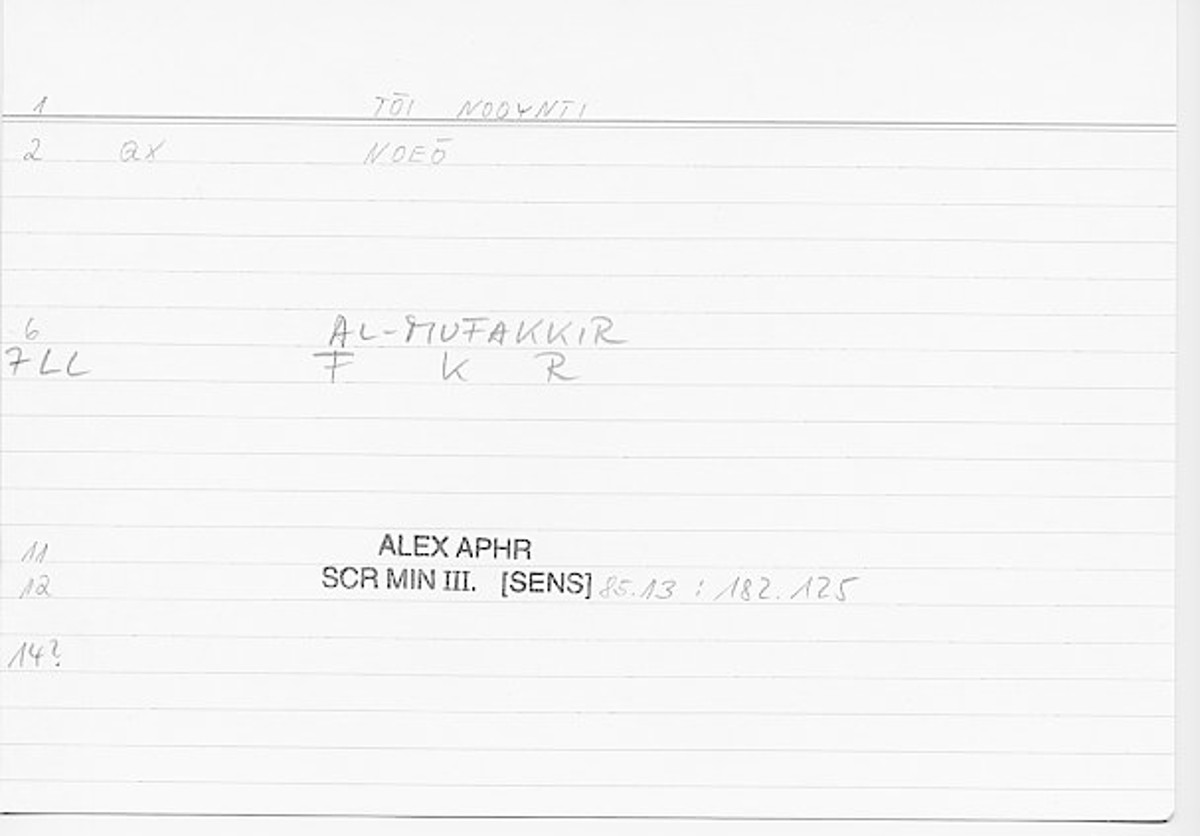 1 TŌI NOOYNTI
2 QX NOEŌ
6 AL-MUFAKKIR
7LL F K R
11 ALEX APHR
12 SCR MIN III. [SENS] 85.13 : 182.125
14?